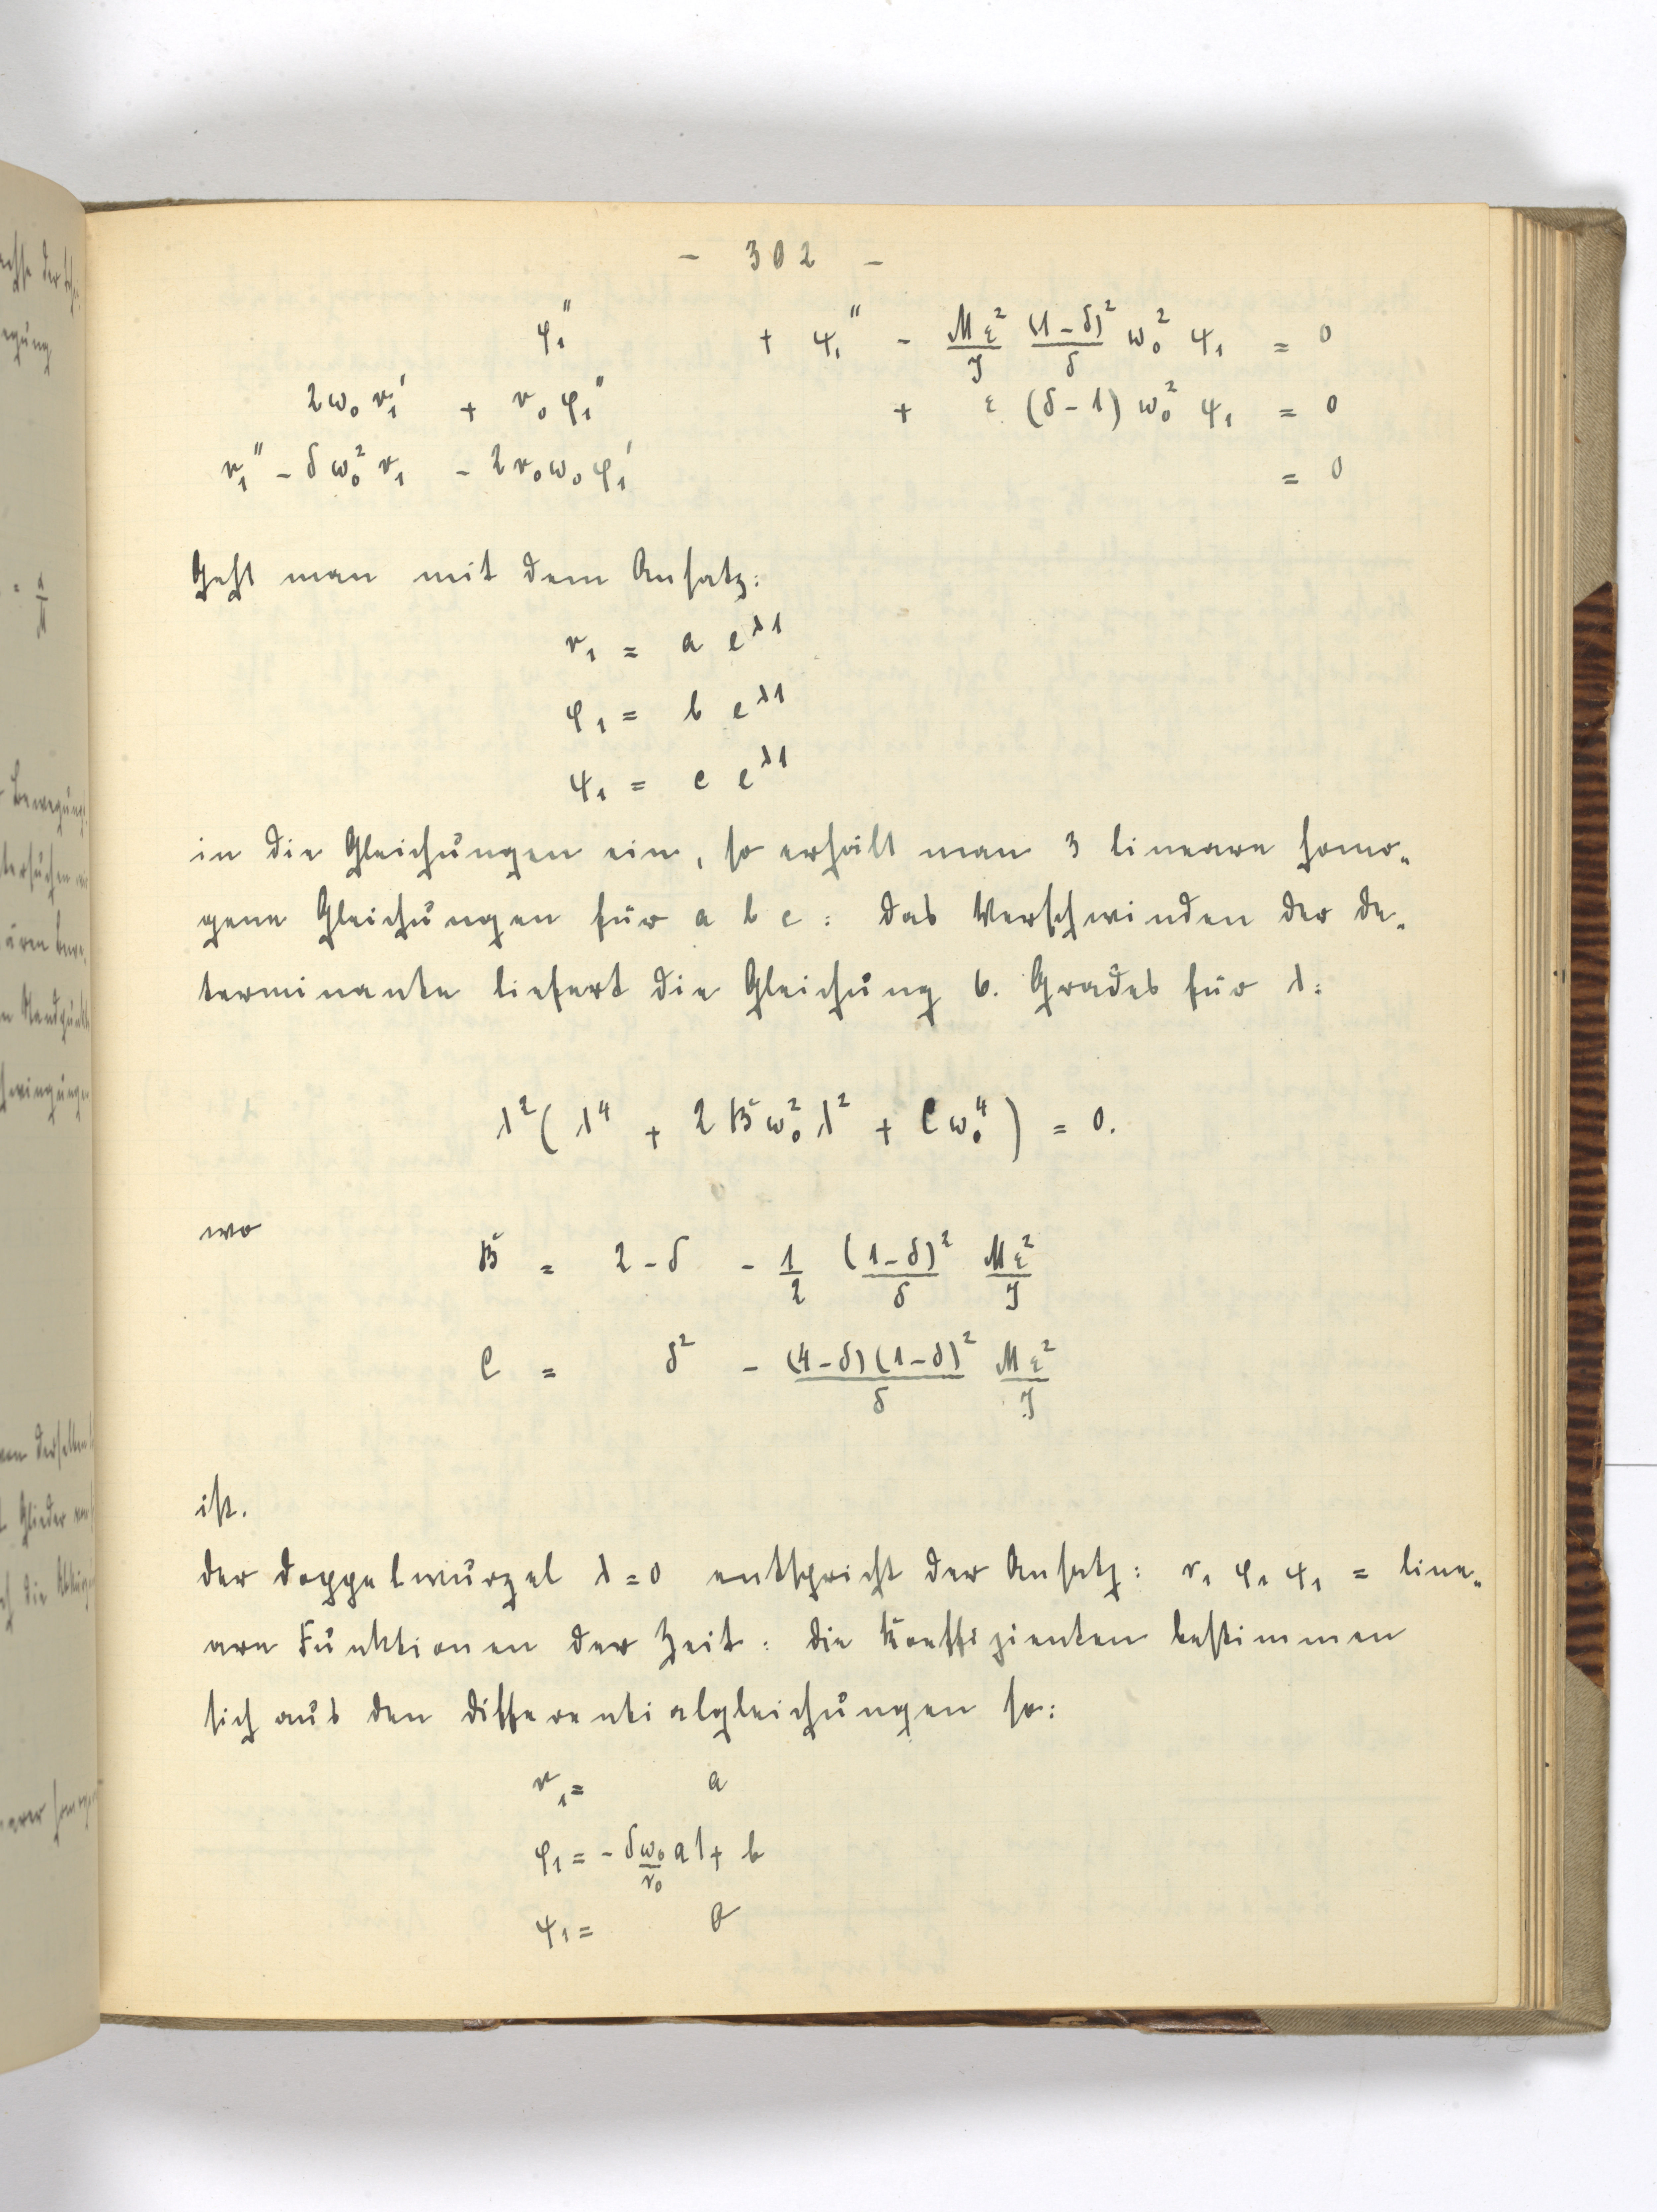 - 302 -
φ₁'' + ψ₁'' - Mε²/J (1-δ)²/δ ω₀² ψ₁ = 0
2ω₀ r₁' + r₀ φ₁'' + ε (δ-1) ω₀² ψ₁ = 0
r₁'' - δω₀² r₁ - 2r₀ω₀φ₁' = 0
Geht man mit dem Ansatz:
r₁ = a e^λt
φ₁ = b e^λt
ψ₁ = c e^λt
in die Gleichungen ein, so erhält man 3 lineare homo-
gene Gleichungen für a b c: das Verschwinden der De-
terminante liefert die Gleichung 6. Grades für λ:
λ²(λ⁴ + 2Bω₀²λ² + Cω₀⁴) = 0.
wo
B = 2-δ - 1/2 (1-δ)²/δ Mε²/J
C = δ² - (4-δ)(1-δ)²/δ Mε²/J
ist.
Der Doppelwurzel λ=0 entspricht der Ansatz: r₁ φ₁ ψ₁ = line-
are Funktionen der Zeit: die Koeffizienten bestimmen
sich aus den Differentialgleichungen so:
r₁= a
φ₁= - δω₀/r₀ a t + b
ψ₁= 0